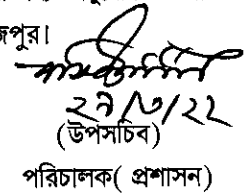 জপুর।
২৭/৩/২২
(উপসচিব)
পরিচালক( প্রশাসন)